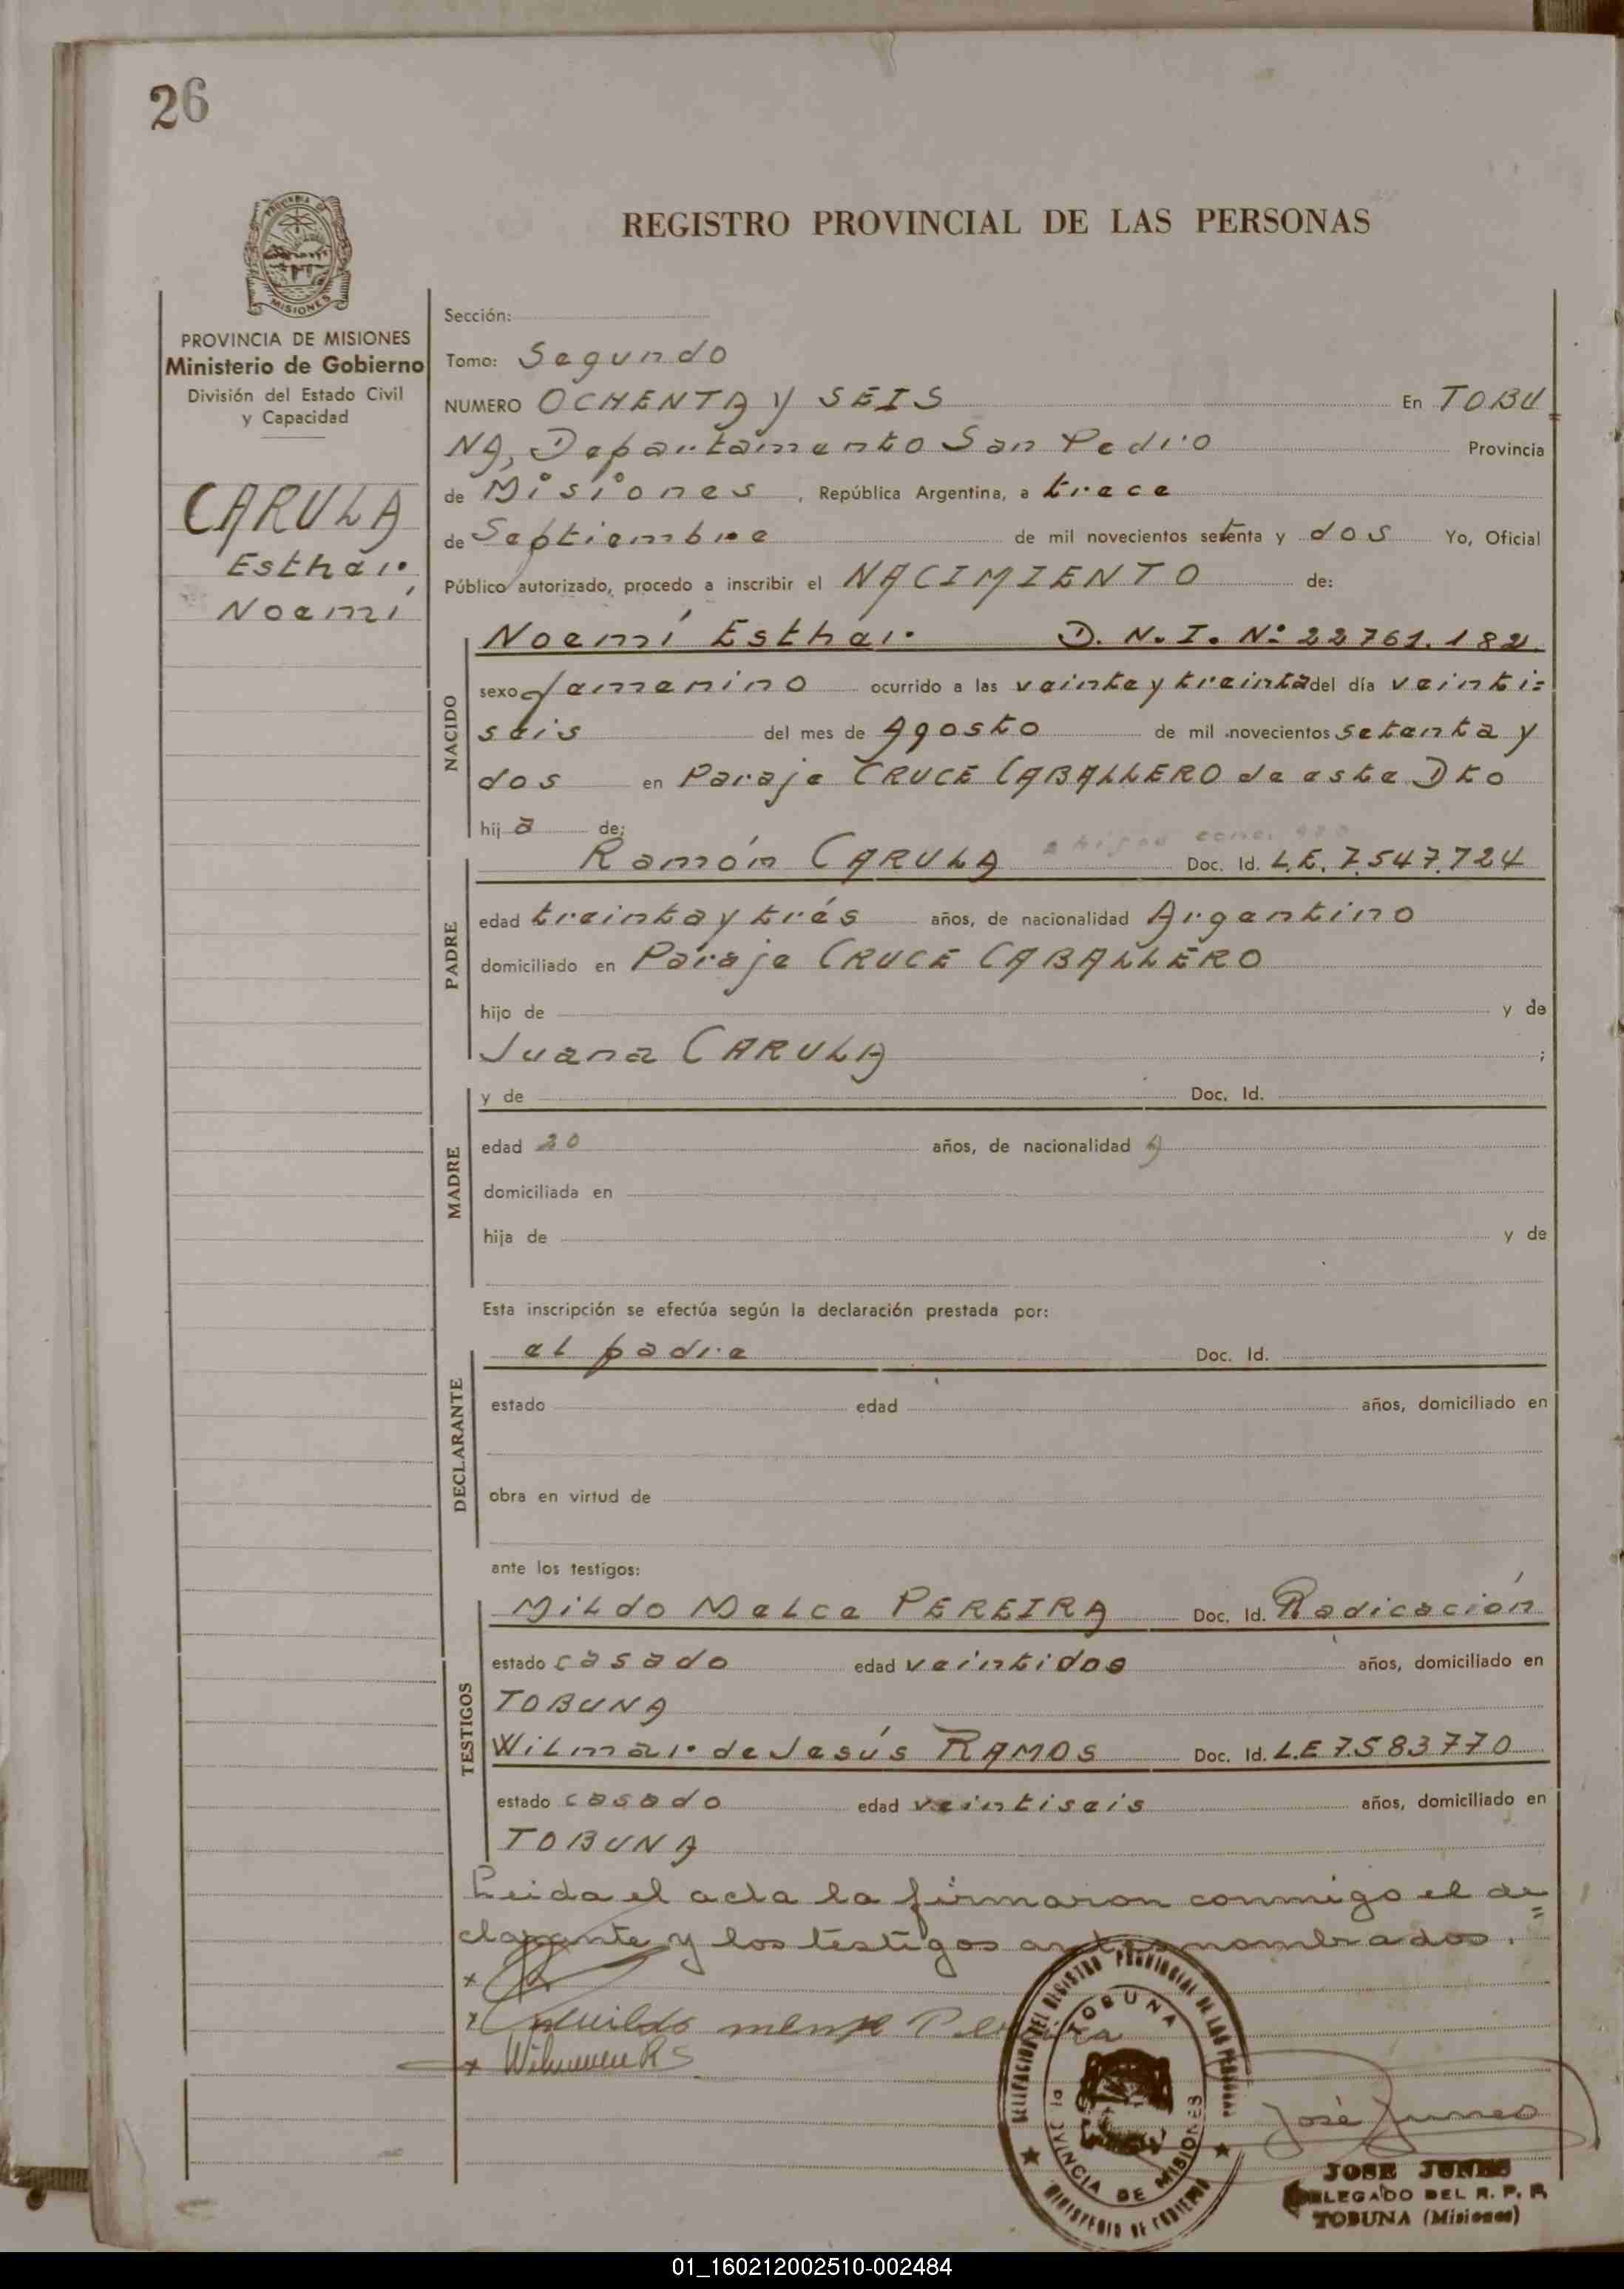 26
REGISTRO PROVINCIAL DE LAS PERSONAS
MISIONES
PROVINCIA DE MISIONES
Ministerio de Gobierno
División del Estado Civil
y Capacidad
CARULA
Esther
Noemí
Sección:
Tomo: Segundo
NUMERO OCHENTA y SEIS En TOBU
NA, Departamento San Pedro Provincia
de Misiones, República Argentina, a trece
de Septiembre de mil novecientos setenta y dos Yo, Oficial
Público autorizado, procedo a inscribir el NACIMIENTO de:
NACIDO
Noemí Esther D. N. I. Nº 22761.182
sexo femenino ocurrido a las veinte y treinta del día veinti=
seis del mes de Agosto de mil novecientos setenta y
dos en Paraje CRUCE CABALLERO de este Dto
hija de:
PADRE
Ramón CARULA Doc. Id. L.E. 7.547.724
edad treinta y trés años, de nacionalidad Argentino
domiciliado en Paraje CRUCE CABALLERO
hijo de y de
Juana CARULA ;
MADRE
y de Doc. Id.
edad 20 años, de nacionalidad A
domiciliada en
hija de y de
Esta inscripción se efectúa según la declaración prestada por:
DECLARANTE
el padre Doc. Id.
estado edad años, domiciliado en
obra en virtud de
ante los testigos:
TESTIGOS
Mildo Melce PEREIRA Doc. Id. Radicación
estado casado edad veintidos años, domiciliado en
TOBUNA
Wilmar de Jesús RAMOS Doc. Id. L.E 7.583770
estado casado edad veintiseis años, domiciliado en
TOBUNA
Leida el acta la firmaron conmigo el de=
clarante y los testigos antes nombrados.
x
x
x
DELEGACION DEL REGISTRO PROVINCIAL DE LAS PERSONAS
TOBUNA
PROVINCIA DE MISIONES
MINISTERIO DE GOBIERNO
José Junes
JOSE JUNES
DELEGADO DEL R. P. P.
TOBUNA (Misiones)
01_160212002510-002484